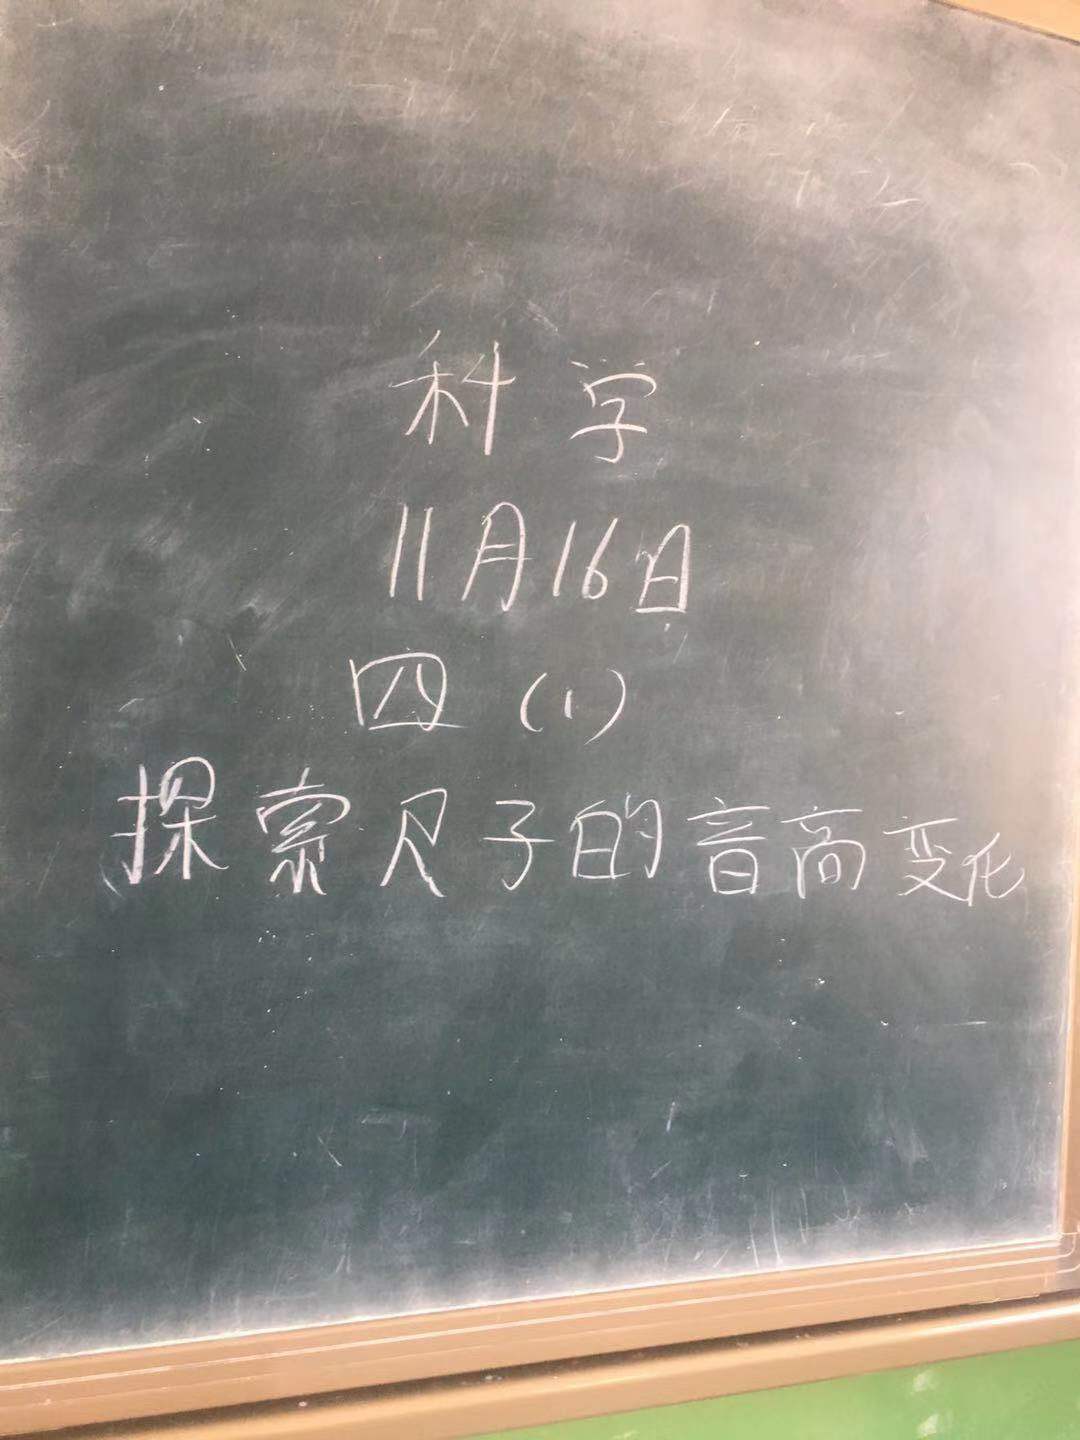 科学
11月16日
四(1)
探索尺子的音高变化